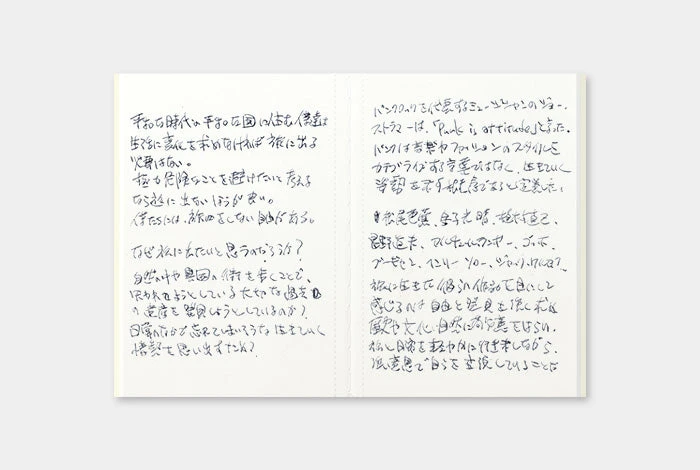 平和な時代の平和な国に住む僕達は
生活に変化を求めなければ旅に出る
必要はない。
極力危険なことを避けたいと考える
なら旅に出ないほうが良い。
僕たちには、旅をしない自由がある。
なぜ旅に出たいと思うのだろうか?
自然の中や異国の街を歩くことで、
失われようとしている大切な過去
の遺産を発見しようとしているのか?
日常のなかで忘れてしまいそうな生きていく
姿勢を思い出すため?
パンクロックを代表するミュージシャンのジョー・
ストラマーは、「Punk is attitude」と言った。
パンクは音楽やファッションのスタイルを
カテゴライズする言葉ではなく、生きていく
姿勢を示す態度であると定義した。
松尾芭蕉、金子光晴、植村直己、
星野道夫、ゴッホ、
ヘンリー・ソロー、ジャック・
旅に生きた彼らの作品を目にして
感じるのは自由と発見を強く求め
歴史や文化、自然に敬意をはらい、
旅と日常を軽やかに行き来しながら、
強い意思で自らを表現していることだ